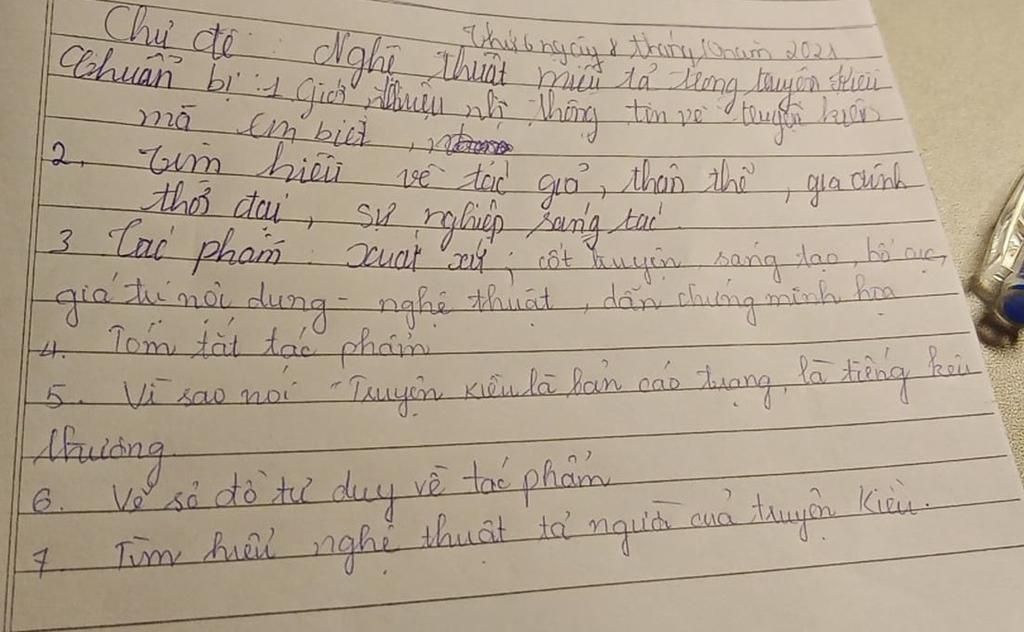 Thứ 6 ngày 8 tháng 10 năm 2021
Chủ đề: Nghệ thuật miêu tả trong truyện Kiều
Chuẩn bị: 1 Giới thiệu những thông tin về truyện Kiều
mà em biết,
2. Tìm hiểu về tác giả, thân thế, gia đình
thời đại, sự nghiệp sáng tác.
3 Tác phẩm: xuất xứ, cốt truyện, sáng tạo, bố cục,
giá trị nội dung - nghệ thuật, dẫn chứng minh họa
4. Tóm tắt tác phẩm
5. Vì sao nói "Truyện Kiều là bản cáo trạng, là tiếng kêu
thương
6. Vẽ sơ đồ tư duy về tác phẩm
7. Tìm hiểu nghệ thuật tả người của truyện Kiều.